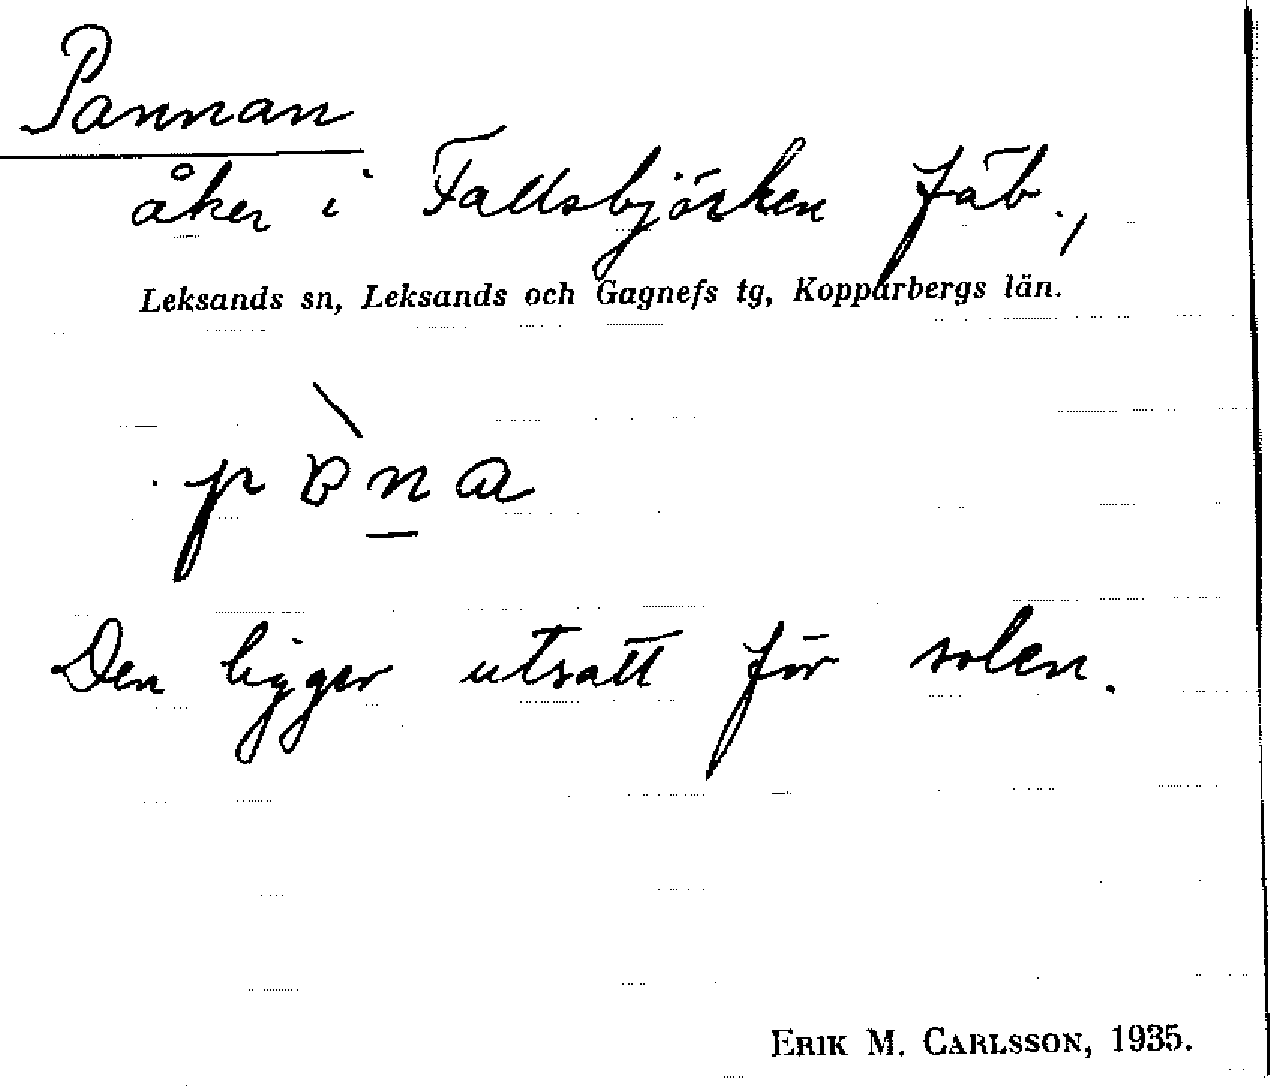 Pannan
åker i Fallsbjörken fäb.,
Leksands sn, Leksands och Gagnefs tg, Kopparbergs län.
Den ligger utsatt för solen.
ERIK M. CARLSSON, 1935.